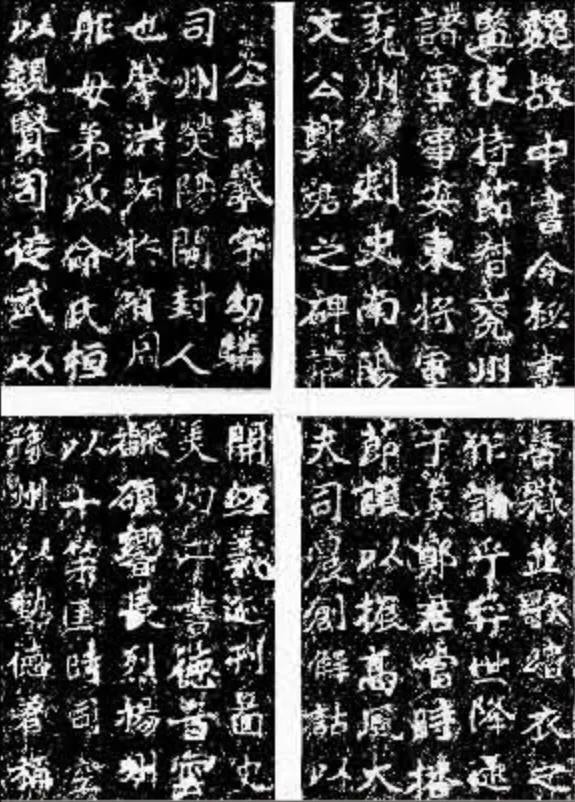 魏故中書令秘書
監使持節督兗州
諸軍事安東將軍
兗州刺史南陽
文公鄭君之碑
公諱羲字幼驎
司州滎陽開封人
也肇洪源於有周
胙母弟以命氏桓
以親賢司徒武以
善職並歌緇衣之
作誦乎奕世降逮
于漢鄭君當時播
節讓以振高風大
夫司農創解詁以
開經義迹刊圖史
美灼二書德音雲
翻碩響長烈揚州
以十策匡時司空
豫州以勳德著稱